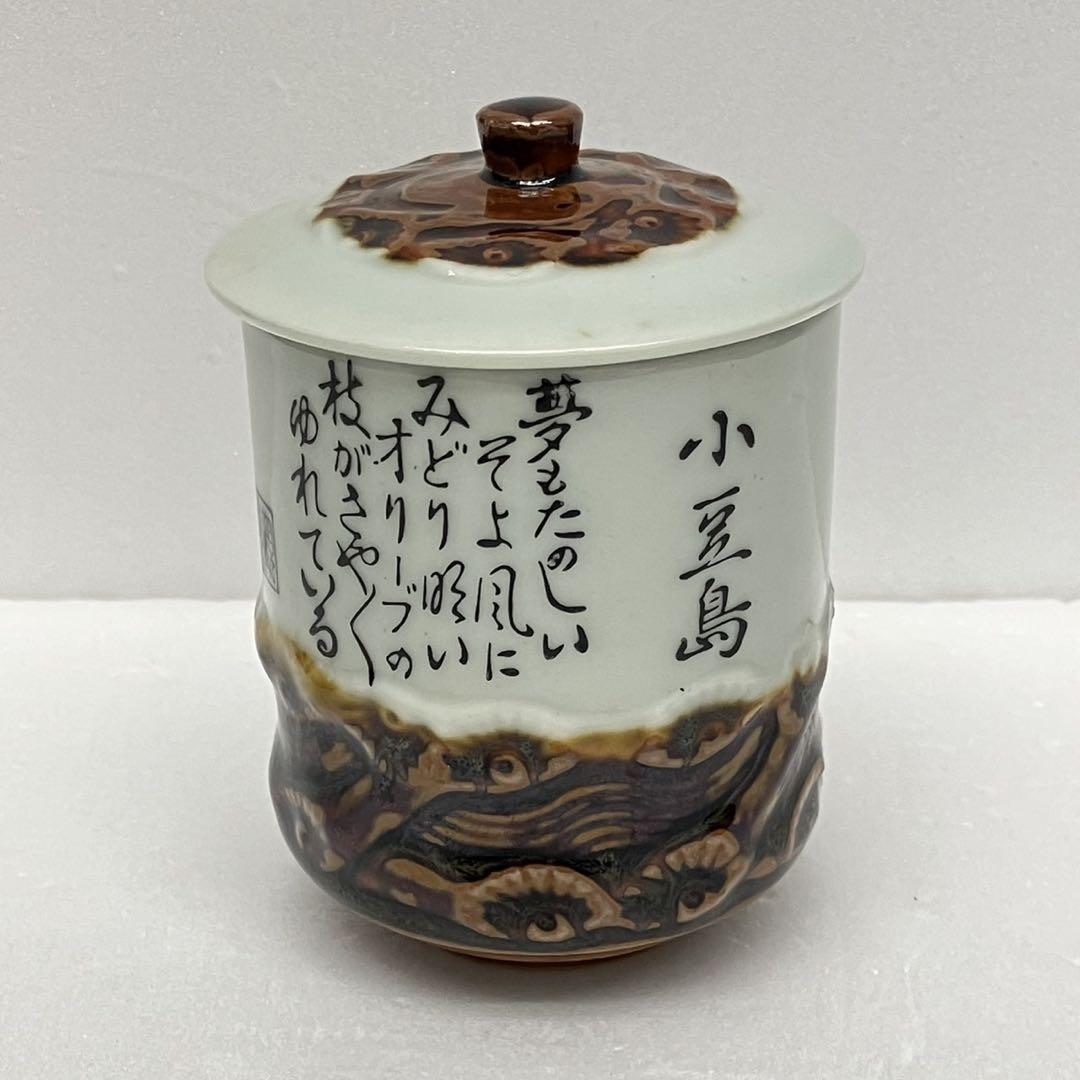 小豆島
夢もたのしい
そよ風に
みどり明るい
オリーブの
枝がさや〱
ゆれている